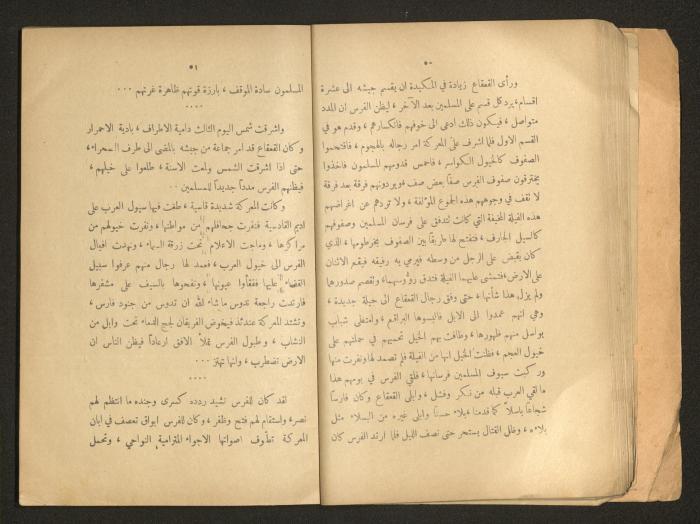 ٥٠
ورأى القعقاع زيادة في المكيدة ان يقسم جيشه الى عشرة
اقسام، يرد كل قسم على المسلمين بعد الآخر، ليظن الفرس ان المدد
متواصل، فيكون ذلك ادعى الى خوفهم فانكسارهم، وقدم هو في
القسم الاول فلما اشرف على المعركة امر رجاله بالهجوم، فاقتحموا
الصفوف كالخيول الكواسر، فاحمس قدومهم المسلمون فاخذوا
يخترقون صفوف الفرس صفاً بعض صف ويردونهم فرقة بعد فرقة
لا تقف في وجوههم هذه الجموع المؤلفة، ولا تردهم عن اغراضهم
هذه الفيلة المخيفة التي كانت تتدفق على فرسان المسلمين وصفوفهم
كالسيل الجارف، فتفتح لها طريقاً بين الصفوف بخرطومها، الذي
كان يقبض على الرجل من وسطه فيرمي به رفيقه فيقع الاثنان
على الارض، فتمشي عليهما الفيلة فتدق رؤوسهما وتقصم صدورهما
ولم يزل هذا شأنها، حتى وفق رجال القعقاع الى حيلة جديدة،
وهي انهم عمدوا الى الابل فالبسوها البراقع، وامتطى شباب
بواسل منهم ظهورها، وطافت بهم الخيل تحميهم في حملتهم على
خيول العجم، فظنت الخيل انها من الفيلة فلم تصمد لها ونفرت منها
وركبت سيوف المسلمين فرسانها، فلقي الفرس في يومهم هذا
ما لقي العرب قبله من نكر وفشل، وابلى القعقاع وكان فارساً
شجاعاً باسلاً كما قدمنا، بلاء حسناً وابلى غيره من البسلاء مثل
بلائه، وظل القتال يستحر حتى نصف الليل فلما ارتد الفرس كان
٥١
المسلمون سادة الموقف، بارزة قوتهم ظاهرة غرتهم ...
....
واشرقت شمس اليوم الثالث دامية الاطراف، بادية الاحمرار
وكان القعقاع قد امر جماعة من جيشه بالمضي الى طرف الصحراء،
حتى اذا اشرقت الشمس ولمعت الاسنة، طلعوا على خيلهم،
فيظنهم الفرس مدداً جديداً للمسلمين ..
وكانت المعركة شديدة قاسية، طغت فيها سيول العرب على
اديم القادسية فنفرت جحافلهم من مواطنها، ونفرت خيولهم من
مراكزها، وماجت الاعلام تحت زرقة السماء، ونهدت افيال
الفرس الى خيول العرب، فعمد لها رجال منهم عرفوا سبيل
القضاء عليها ففقأوا عيونها، ونفحوها بالسيف على مشفرها
فارتدت راجعة تدوس ما شاء الله ان تدوس من جنود فارس،
وتشتد المعركة عندئذ فيخوض الفريقان لجج الدماء تحت وابل من
النشاب، وطبول الفرس تملأ الافق ارعاداً فيظن الناس ان
الارض تضطرب، وانها تهتز ...
....
لقد كان للفرس نشيد ردده كسرى وجنده ما انتظم لهم
نصر، واستقام لهم فتح وظفر، وكان للفرس ابواق تعصف في ابان
المعركة تطوف اصواتها الاجواء المترامية النواحي، وتحمل